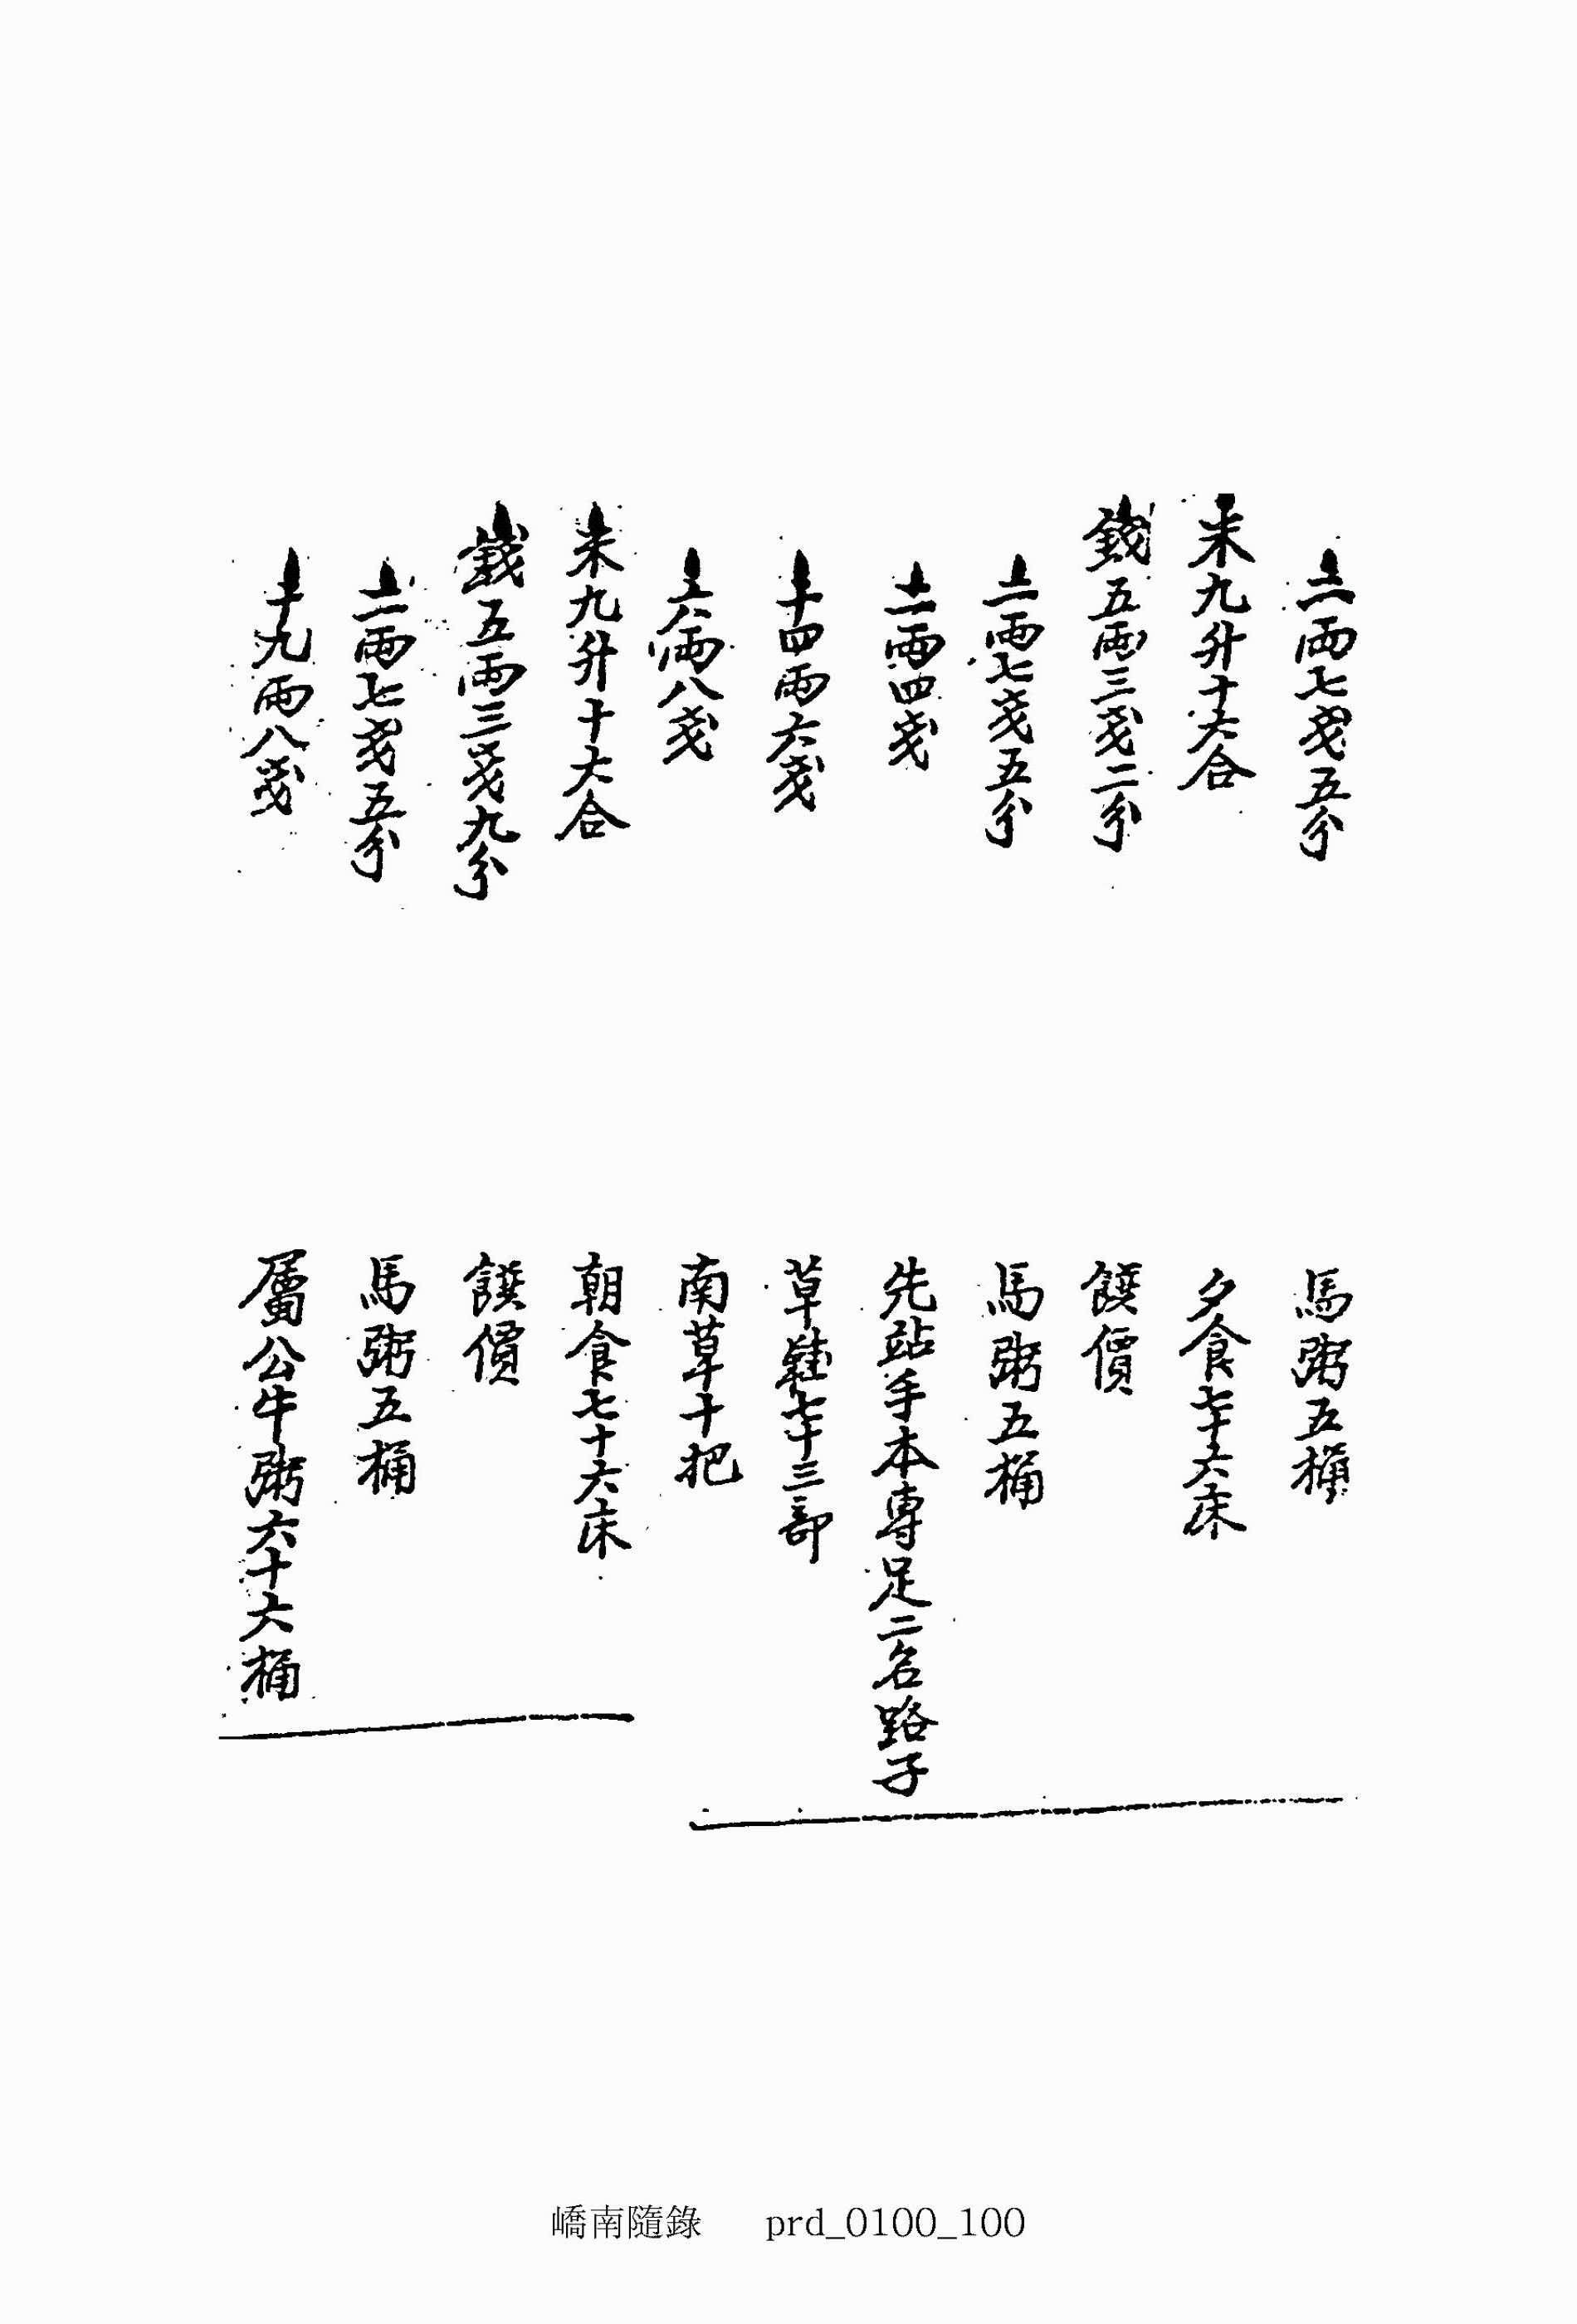 二兩七戔五分 馬粥五桶
米九升十六合 夕食七十六床
錢五兩三戔二分 饌價
二兩七戔五分 馬粥五桶
二兩四戔 先站手本專足二名路子
十四兩六戔 草鞋七十三部
六兩八戔 南草十把
米九升十六合 朝食七十六床
錢五兩三戔九分 饌價
二兩七戔五分 馬粥五桶
十九兩八戔 屬公牛粥六十六桶
嶠南隨錄 prd_0100_100